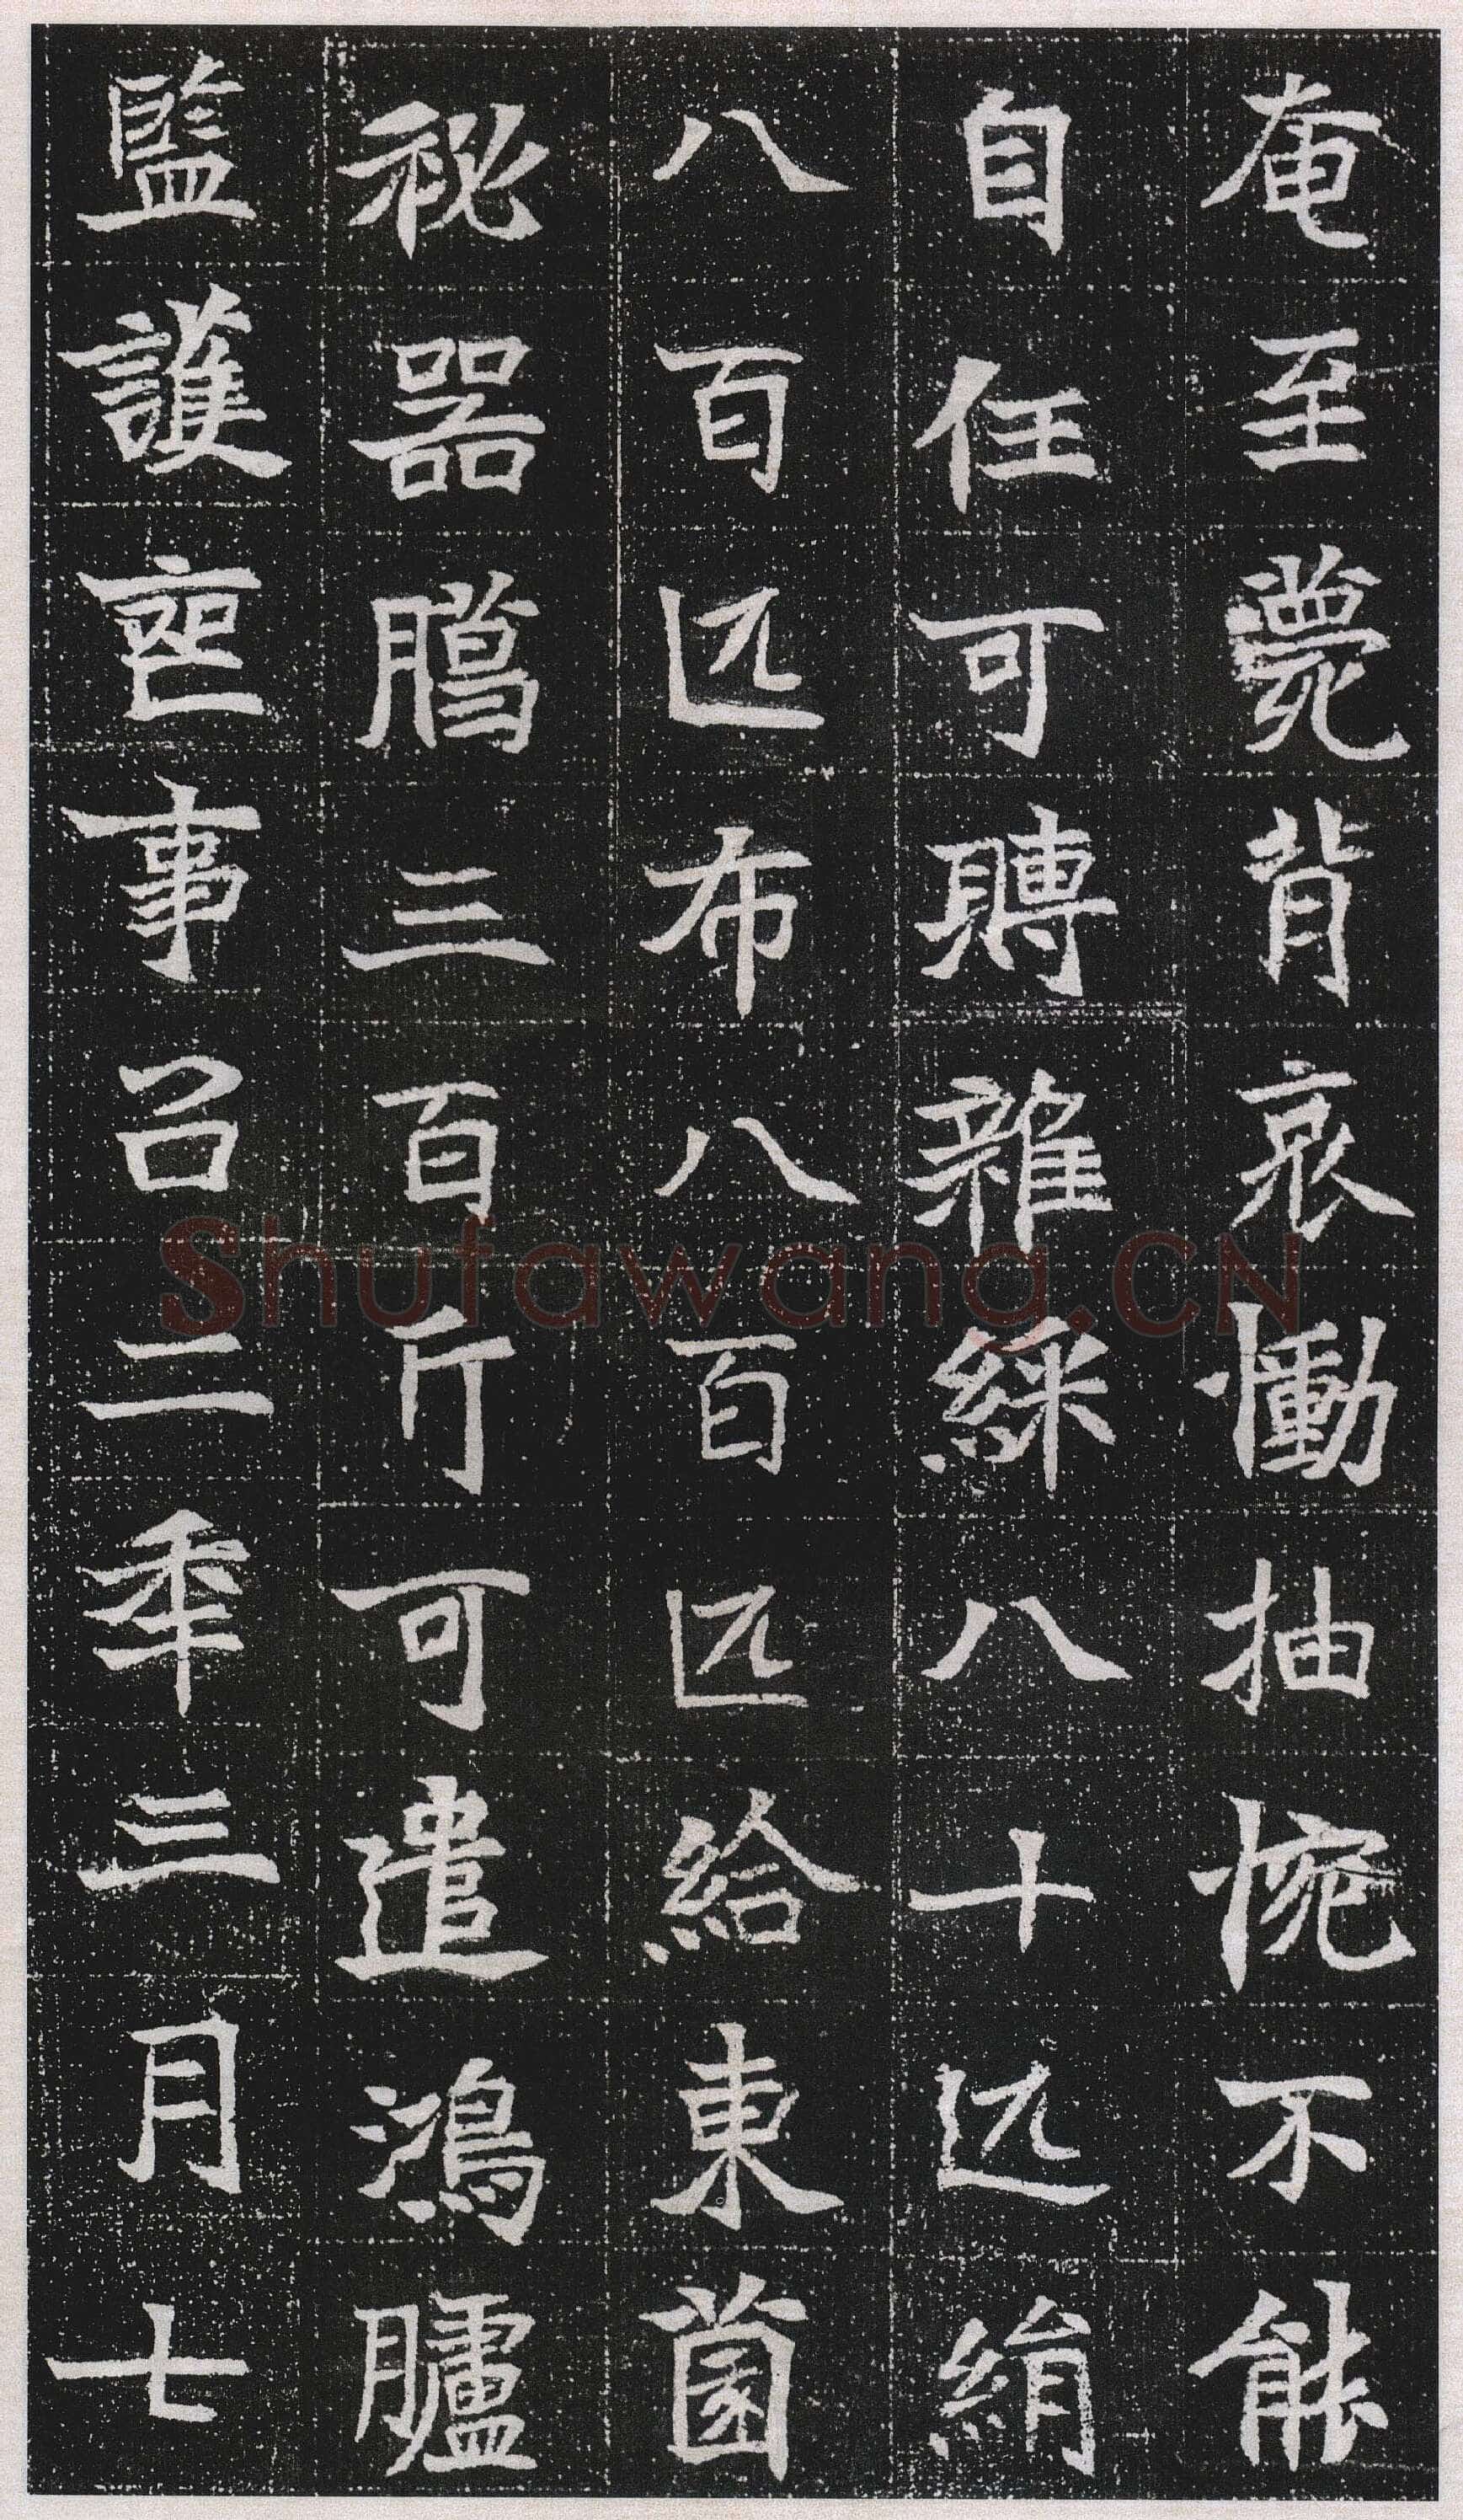 奄至薨背哀慟抽惋不能
自任可賻雜綵八十匹絹
八百匹布八百匹給東園
秘器臈三百斤可遣鴻臚
監護喪事召二年三月七
Shufawang.CN